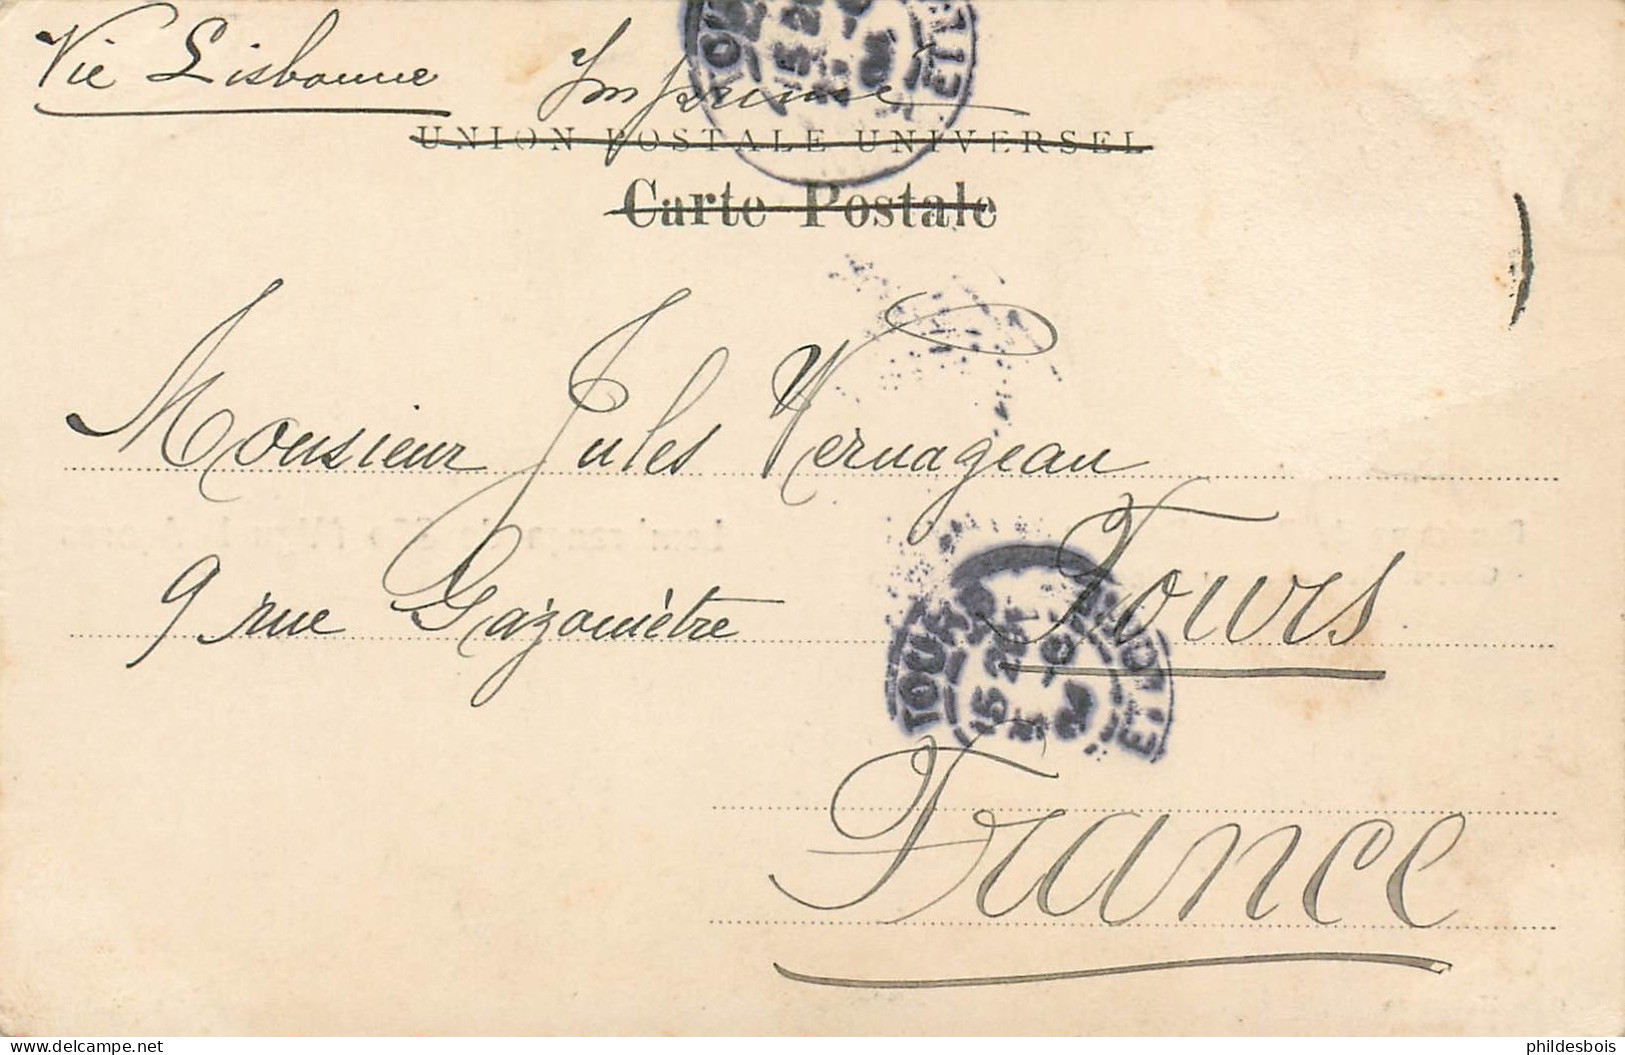 Vie Lisbonne Imprimé
UNION POSTALE UNIVERSEL
Carte Postale
Monsieur Jules Vernageau
9 rue Gazomètre Tours
TOURS
15 20
ET
France
delcampe.net
phildesbois